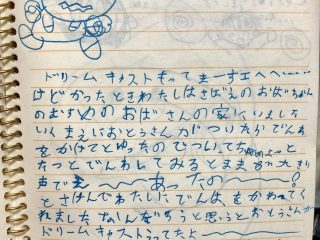 ドリームキャストもってまーすエへへ……
けどかったときわたしはさばえのおばちゃん
のむすめのおばさんの家にいました
いくまえにおとうさんがついたらでんわ
をかけてとゆったのでついて
たっとでんわしてみるとままが大きい
声でえ〜〜あったの〜〜!
とさけんでわたしにでんわをかわってく
れましたなんだろうと思うとおとうさんが
ドリームキャストうってたよ〜〜